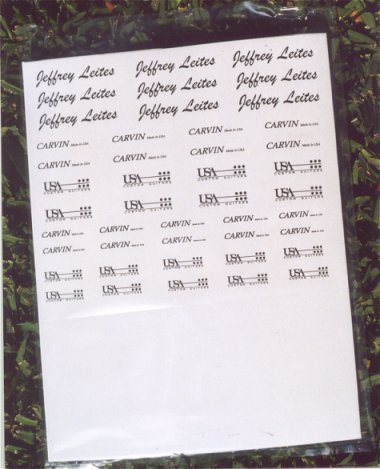 Jeffrey Leites Jeffrey Leites Jeffrey Leites
Jeffrey Leites Jeffrey Leites Jeffrey Leites
Jeffrey Leites Jeffrey Leites Jeffrey Leites
CARVIN Made in USA CARVIN Made in USA CARVIN Made in USA CARVIN Made in USA
CARVIN Made in USA CARVIN Made in USA CARVIN Made in USA CARVIN Made in USA
USA USA USA USA
CUSTOM GUITARS CUSTOM GUITARS CUSTOM GUITARS CUSTOM GUITARS
USA USA USA USA
CUSTOM GUITARS CUSTOM GUITARS CUSTOM GUITARS CUSTOM GUITARS
CARVIN Made in USA CARVIN Made in USA CARVIN Made in USA CARVIN Made in USA CARVIN Made in USA
CARVIN Made in USA CARVIN Made in USA CARVIN Made in USA CARVIN Made in USA CARVIN Made in USA
USA USA USA USA USA
CUSTOM GUITARS CUSTOM GUITARS CUSTOM GUITARS CUSTOM GUITARS CUSTOM GUITARS
USA USA USA USA USA
CUSTOM GUITARS CUSTOM GUITARS CUSTOM GUITARS CUSTOM GUITARS CUSTOM GUITARS